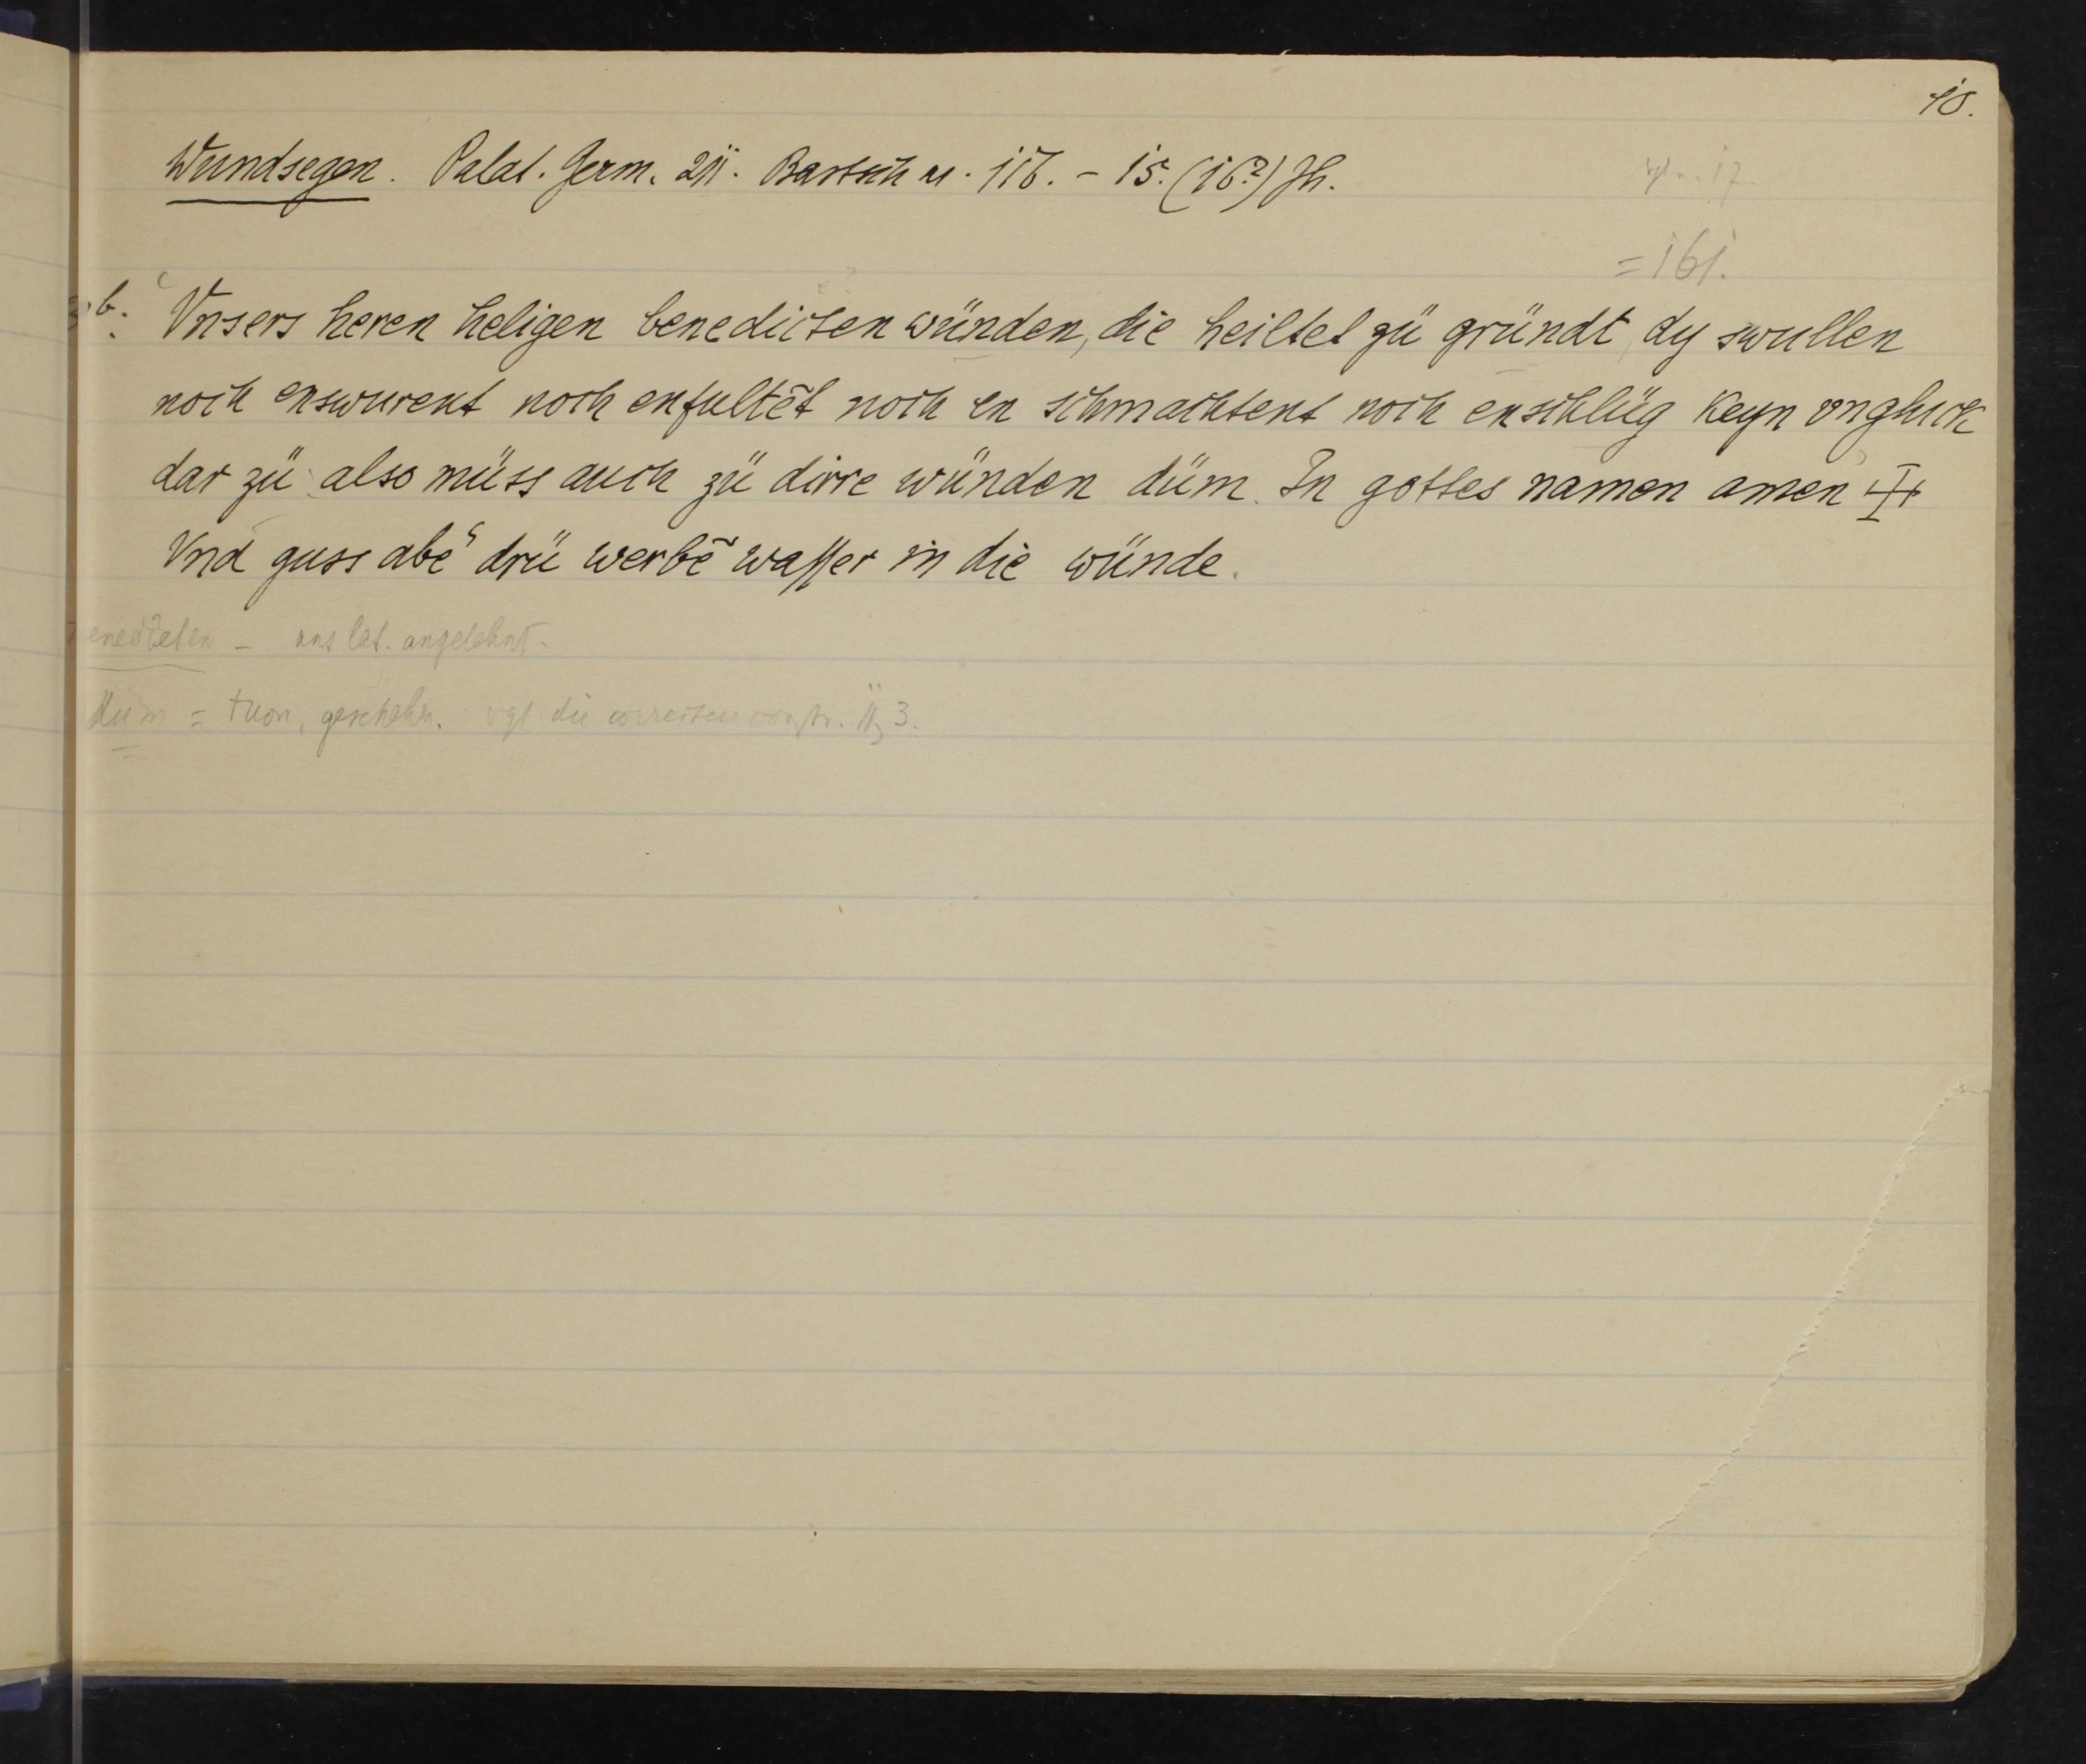 18.
Wundsegen. Palat. Germ. 211. Bartsch n. 116. – 15. (16?) Jh.
vgl. n. 17
= 161.
b. Vnsers heren heligen benedicten wünden, die heiltet zü gründt dy swullen
noch enswurent noch enfultēt noch en schmachtent noch enschlüg keyn vngluck
dar zü also müss auch zü dirre wünden düm. In gottes namen amen
Vnd guss abe drü werbē wasser in die wünde.
aus lat. angelehnt.
düm = tuon, geschehn. vgl. die 11, 3.